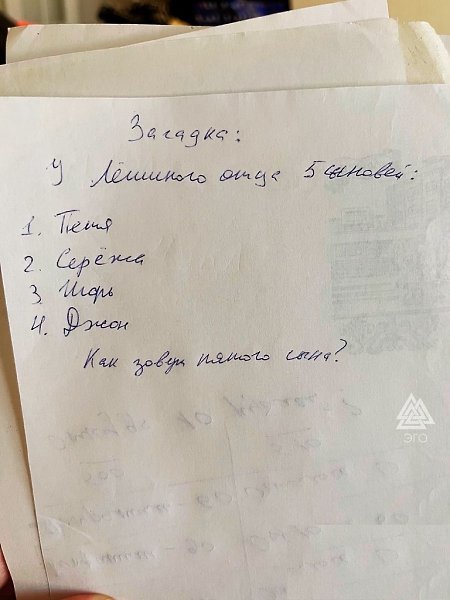 Загадка:
У Лёшиного отца 5 сыновей:
1. Петя
2. Серёжа
3. Игорь
4. Джон
Как зовут пятого сына?
эго